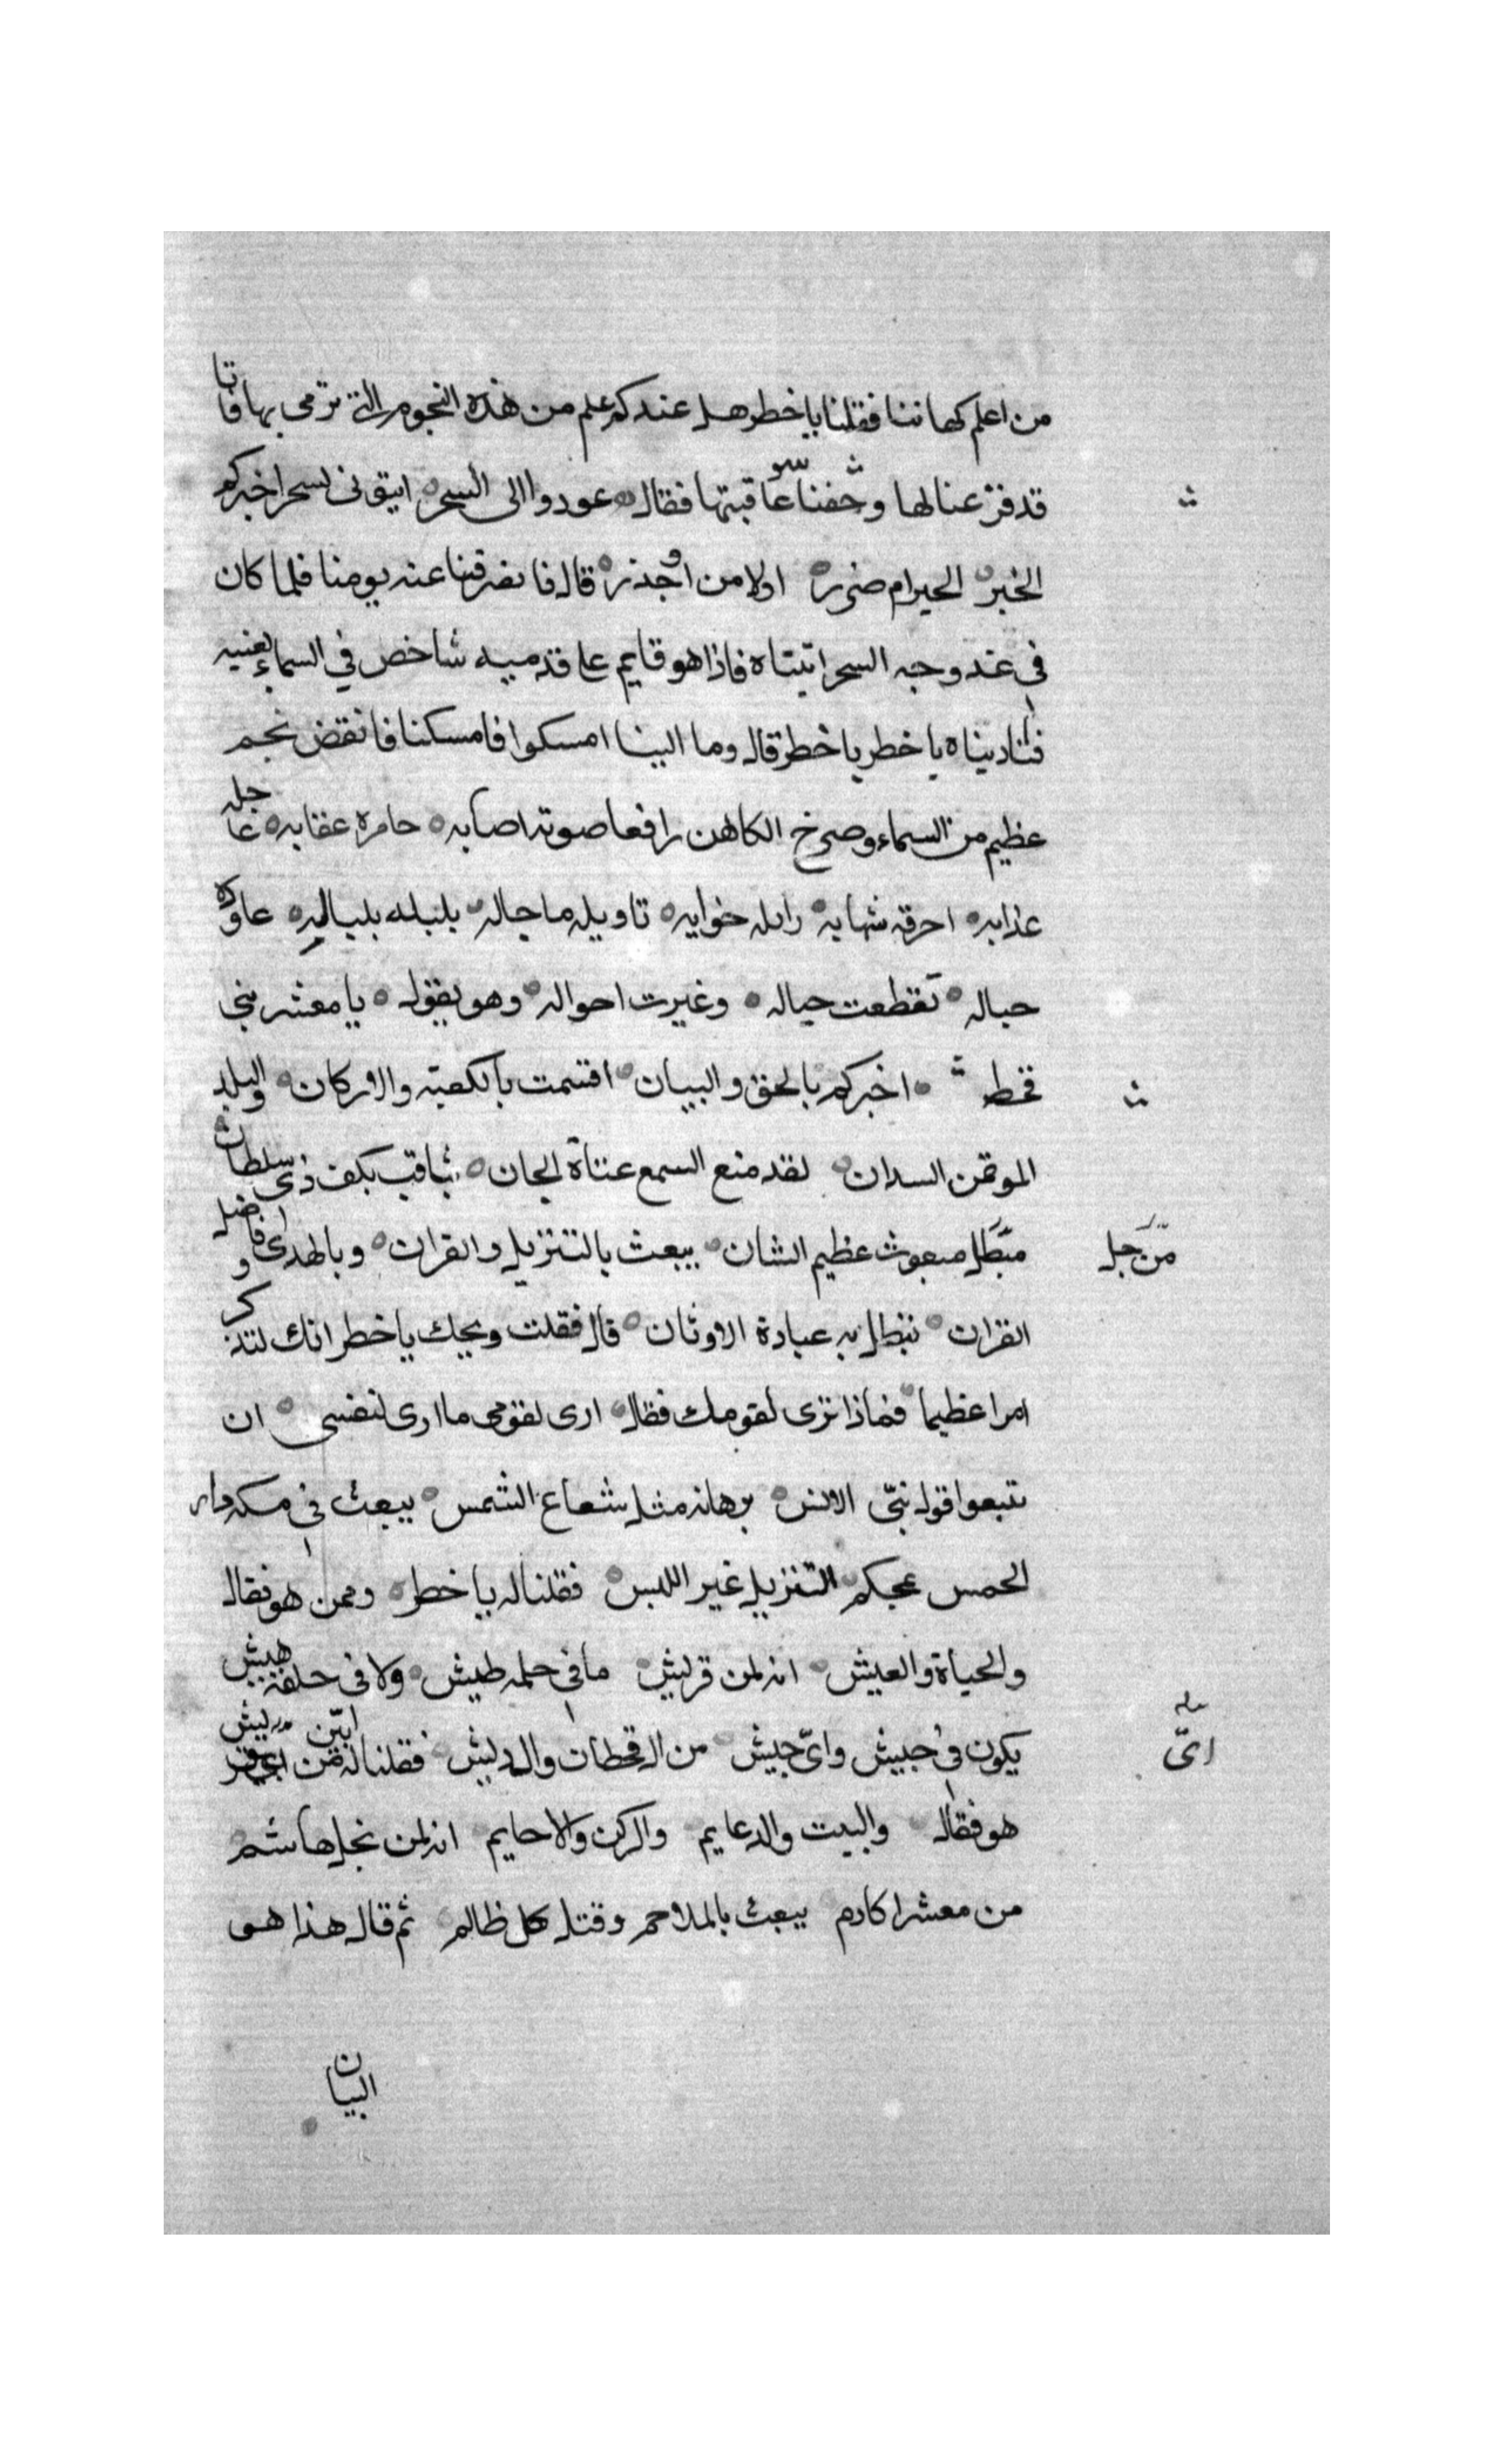 من اعلم كهاننا فقلنا يا خطر هل عندكم علم من هذه النجوم التي ترمى بها فانا
قد فزعنا لها وخفنا سو عاقبتها فقال عودوا الى السحر ايتوني لسحر اخبركم
الخبر الخير ام ضرر او لا من او حذر قال فانصرفنا عنه يومنا فلما كان
في غد وجه السحر اتيناه فاذا هو قايم على قدميه شاخص في السماء بعينيه
فناديناه يا خطر يا خطر قال وما الينا امسكوا فامسكنا فانقض نجم
عظيم من السماء وصرخ الكاهن رافعا صوته اصابه خامره عقابه عاجله
عذابه احرقه شهابه زايله جوابه تاويله ما حاله بلبله بلباله عاوده
حباله تقطعت حباله وغيرت احواله وهو يقول يا معشر بني
قحط اخبركم بالحق والبيان اقسمت بالكعبة والاركان والبلد
الموتمن السدان لقد منع السمع عتاة الجان بثاقب بكف ذي سلطان
مبعوث عظيم الشان يبعث بالتنزيل والقران وبالهدى وفاصل
القران تبطل به عبادة الاوثان قال فقلت ويحك يا خطر انك لتذكر
امرا عظيما فماذا ترى لقومك فقال ارى لقومي ما ارى لنفسي ان
تتبعوا قول نبي الانس برهانه مثل شعاع الشمس يبعث في مكة دار
الحمس بمحكم التنزيل غير اللبس فقلنا له يا خطر وممن هو فقال
والحياة والعيش انه لمن قريش ما في حلمه طيش ولا في خلقه هيش
يكون في جيش واي جيش من ال قحطان وال ريش فقلنا له من اي قريش
هو فقال والبيت والدعايم والركن والاحايم انه لمن نجل هاشم
من معشر اكارم يبعث بالملاحم وقتل كل ظالم ثم قال هذا هو
البيان
من جل
اي